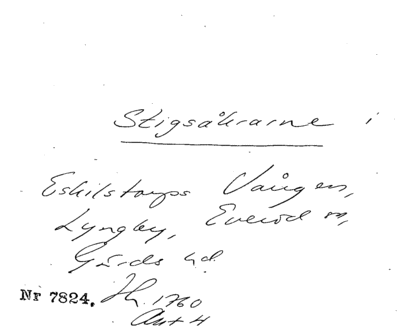 Stigsåkrarne i
Eskilstorps Vången,
Lyngby, Everöd sn,
Gärds hd.
Nr 7824. Jh. 1760
Akt 4